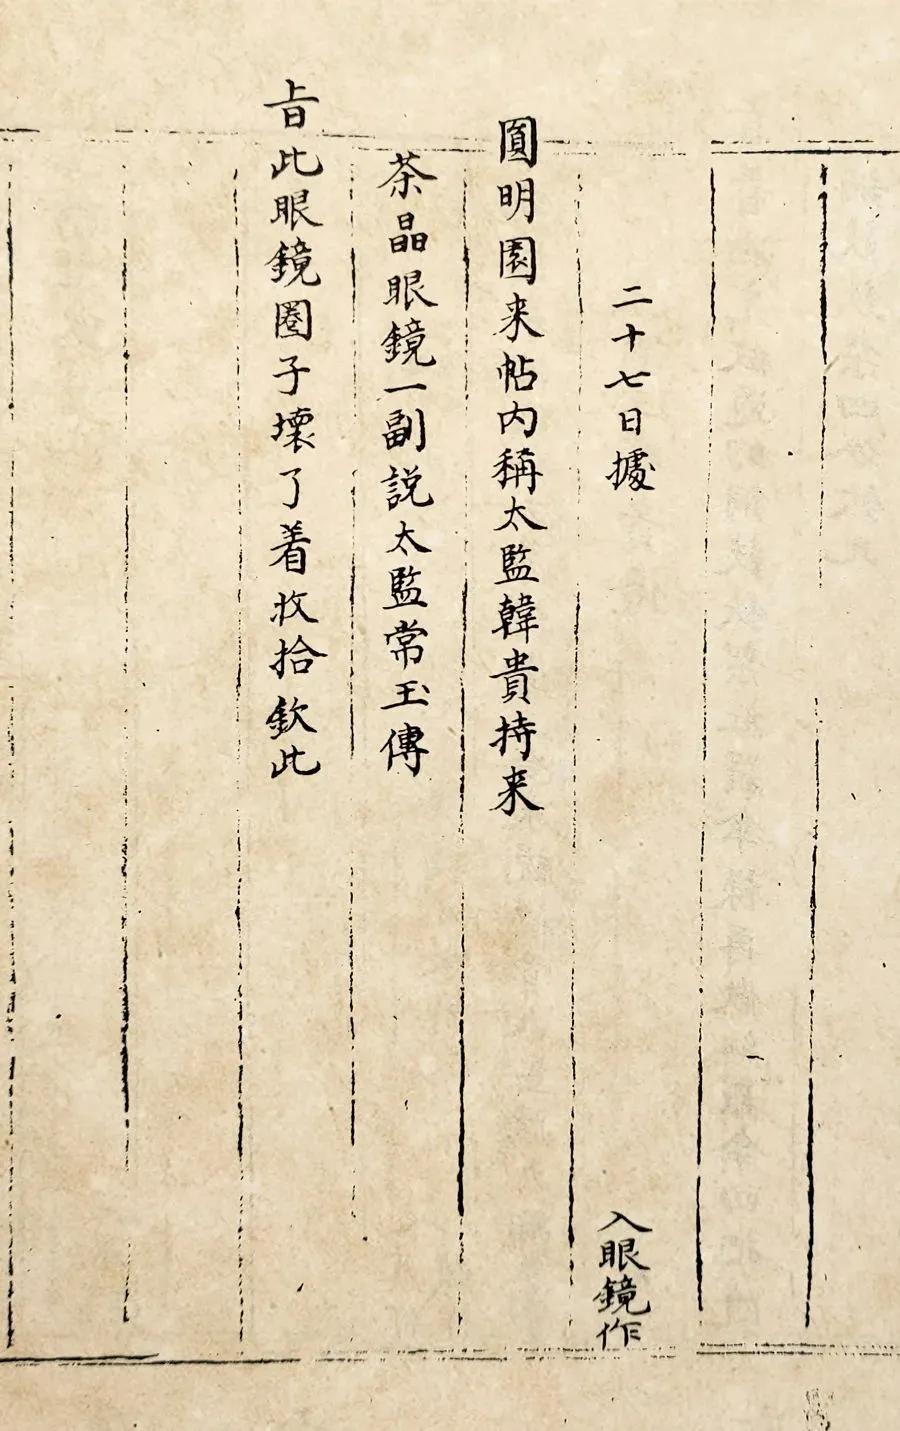 二十七日據
入眼鏡作
圓明園来帖内稱太監韓貴持来
茶晶眼鏡一副說太監常玉傳
旨此眼鏡圈子壞了着收拾欽此